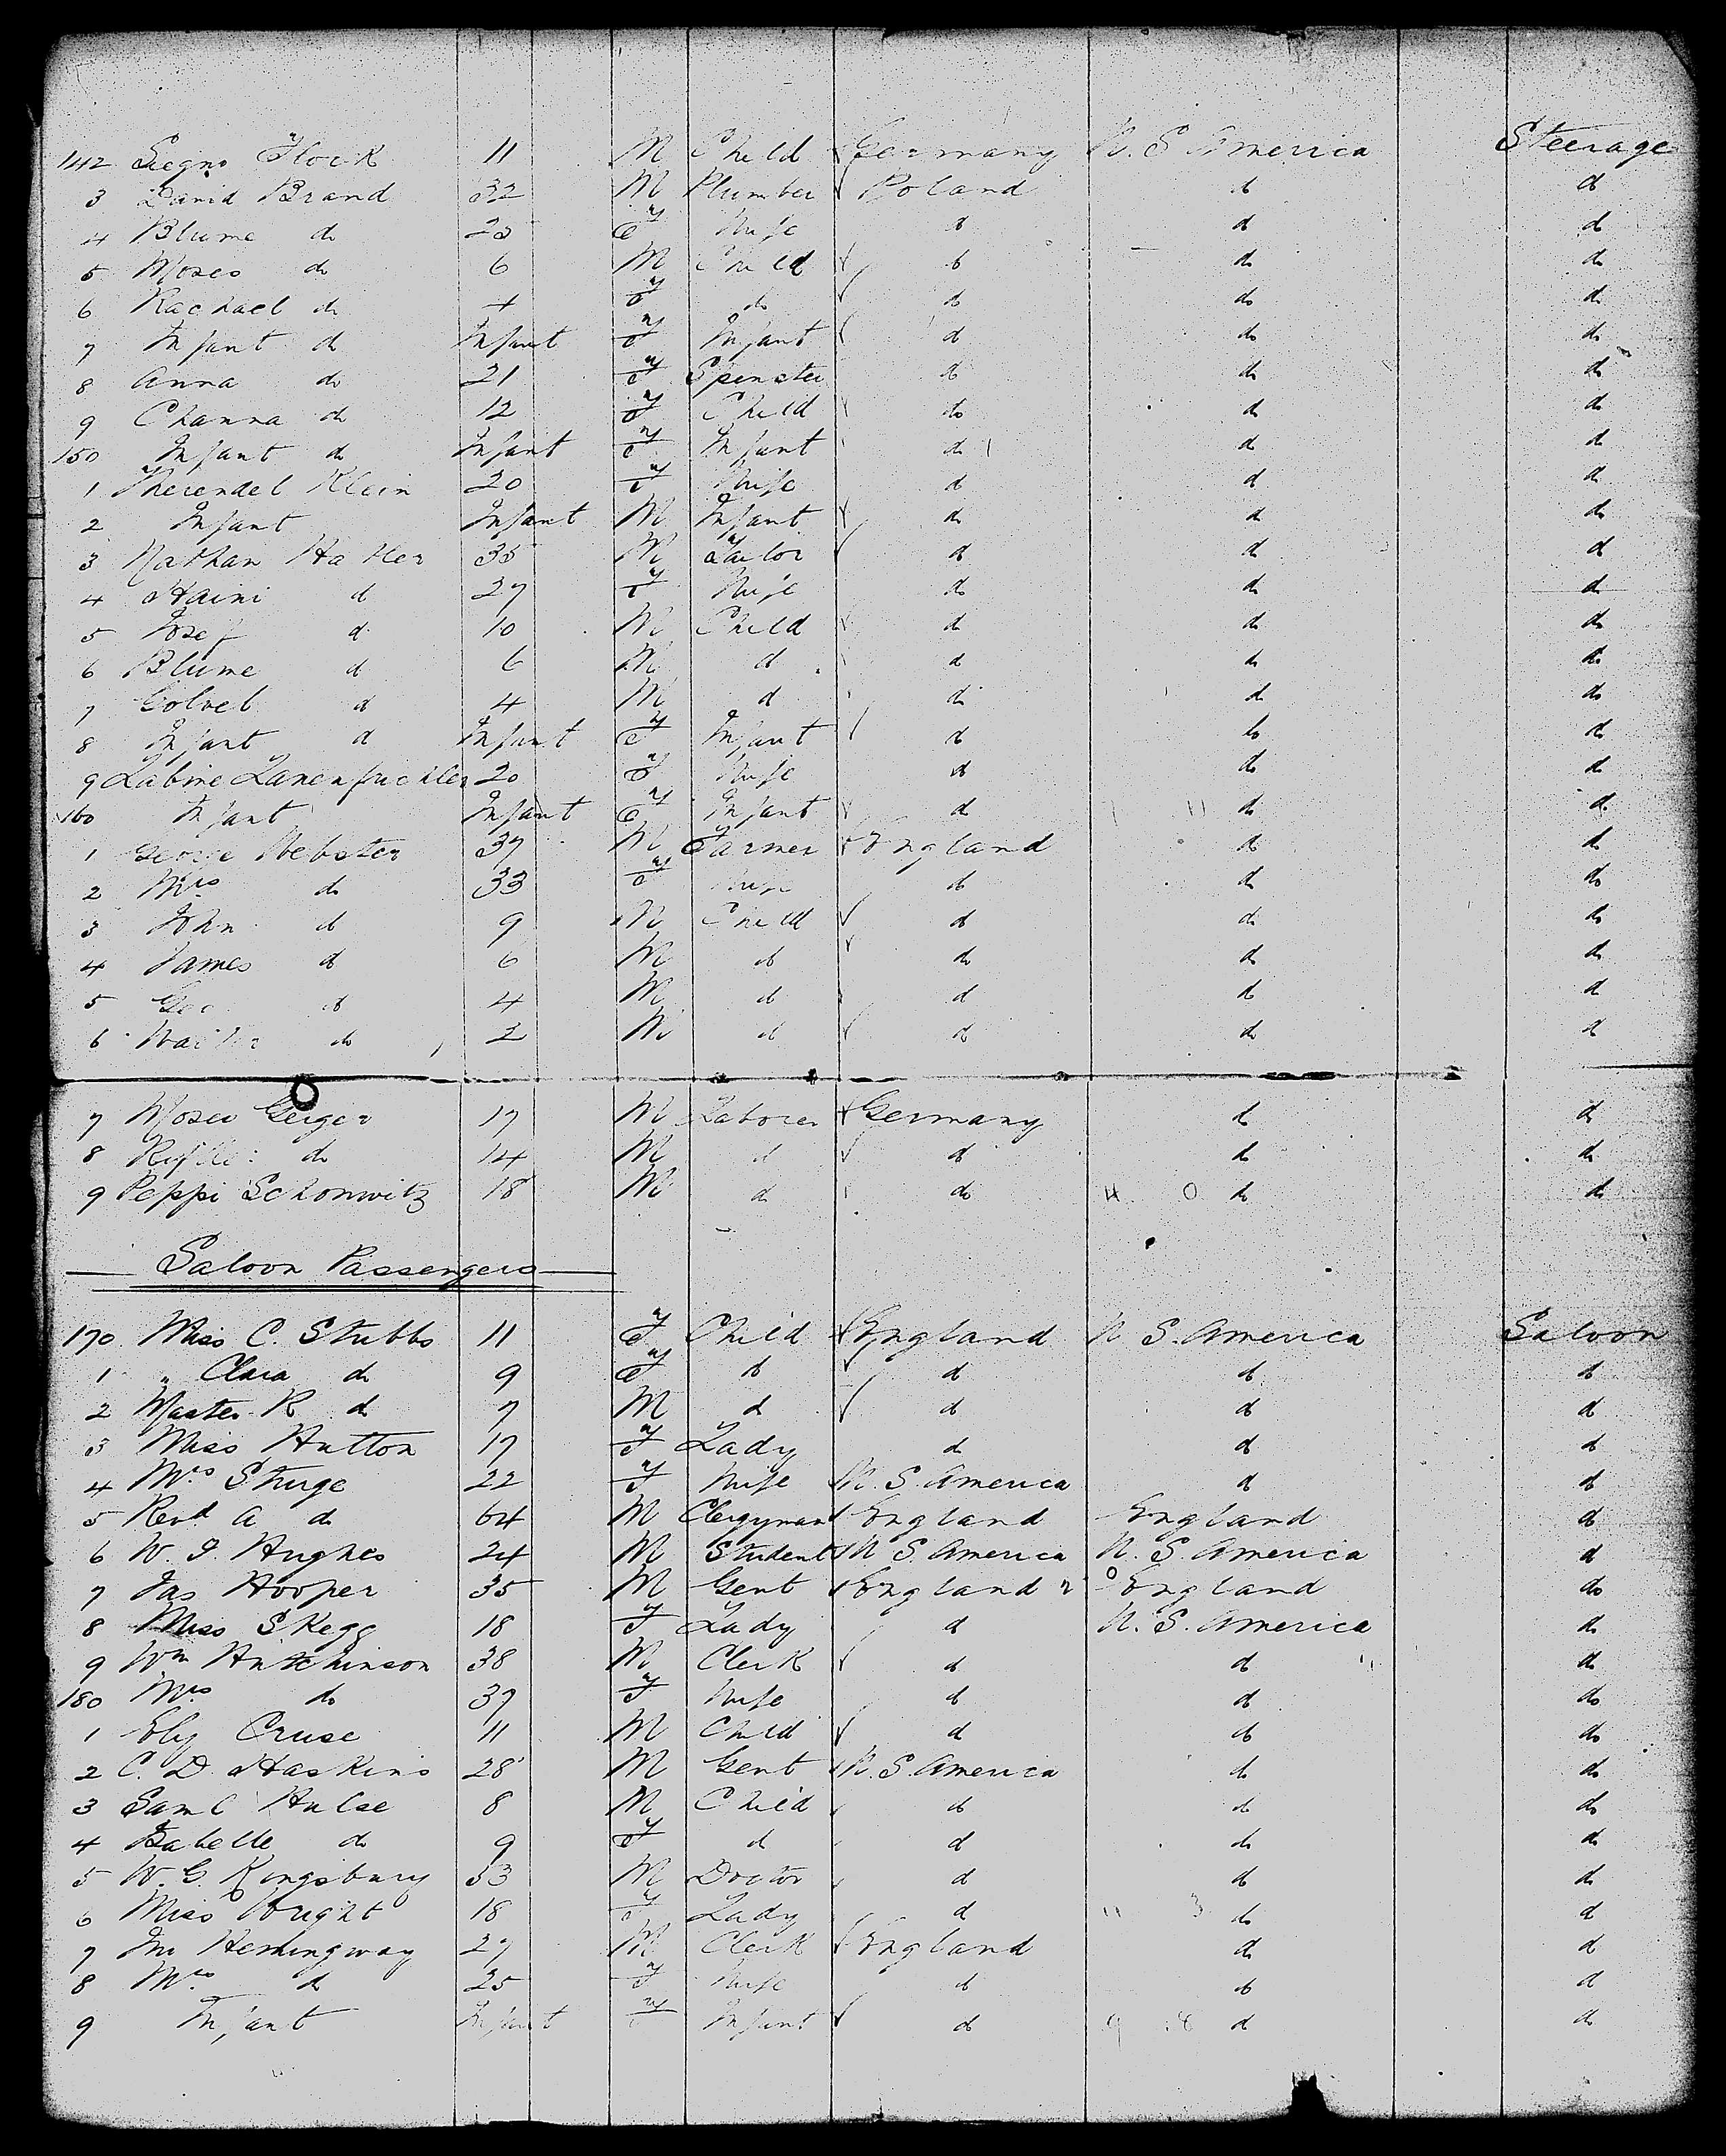 142 Hock 11 M Child Germany U. S America Steerage
3 David Brand 32 M Plumber Poland do do
4 Blume do F Wife do do do
5 Moses do 6 M Child do do do
6 Rachael do 4 F do do do do
7 Infant do Infant F Infant do do do
8 Anna do 21 F Spinster do do do
9 Channa do 12 F Child do do do
150 Infant do Infant F Infant do do do
1 Klein 20 F Wife do do do
2 Infant Infant M Infant do do do
3 Nathan 35 M Tailor do do do
4 Haini do 27 F Wife do do do
5 Josef do 10 M Child do do do
6 Blume do 6 M do do do do
7 do 4 M do do do do
8 Infant do Infant F Infant do do do
9 20 F Wife do do do
160 Infant Infant F Infant do do do
1 George Webster 37 M Farmer England do do
2 Mrs do 33 F Wife do do do
3 John do 9 M Child do do do
4 James do 6 M do do do do
5 Geo do 4 M do do do do
6 Walter do 2 M do do do do
7 Moses Geiger 17 M Laborer Germany do do
8 do 14 M do do do do
9 Peppi Schonwitz 18 M do do do do
Saloon Passengers
170 Miss C. Stubbs 11 F Child England U S. America Saloon
1 " Clara do 9 F do do do do
2 Master R do 7 M do do do do
3 Miss Hutton 17 F Lady do do do
4 Mrs Sturge 22 F Wife U. S. America do do
5 Revd A do 64 M Clergyman England England do
6 W. J. Hughes 24 M Student U S. America U. S. America do
7 Jas Hooper 35 M Gent England England do
8 Miss Skegg 18 F Lady do U. S. America do
9 Wm Hutchinson 38 M Clerk do do do
180 Mrs do 37 F Wife do do do
1 Ely Cruse 11 M Child do do do
2 C. D. Haskins 28 M Gent U. S America do do
3 Saml Hulse 8 M Child do do do
4 Isabelle do 9 F do do do do
5 W. G. Kingsbury 53 M Doctor do do do
6 Miss Wright 18 F Lady do do do
7 Mr Hemingway 27 M Clerk England do do
8 Mrs do 25 F Wife do do do
9 Infant Infant F Infant do do do